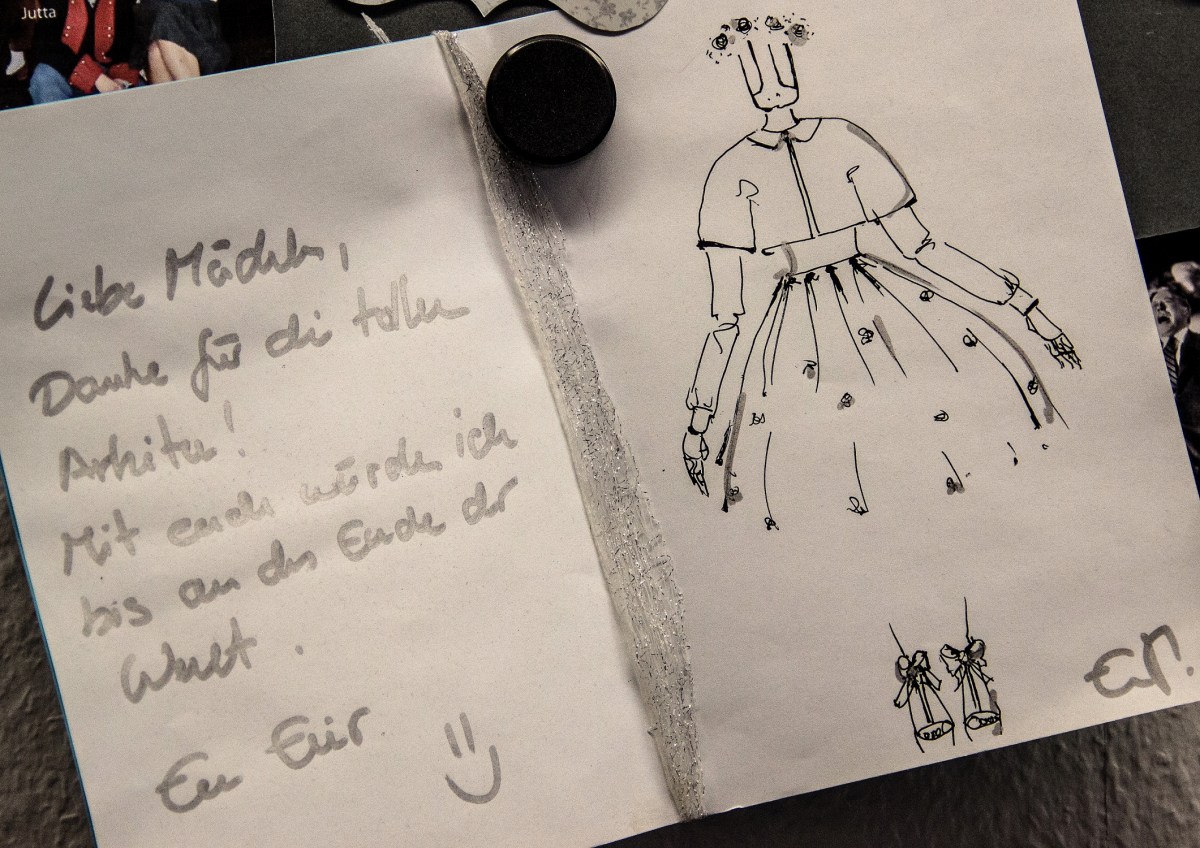 Jutta
Liebe Mädels,
Danke für die tollen
Arbeiten!
Mit euch würde ich
bis an das Ende der
Welt.